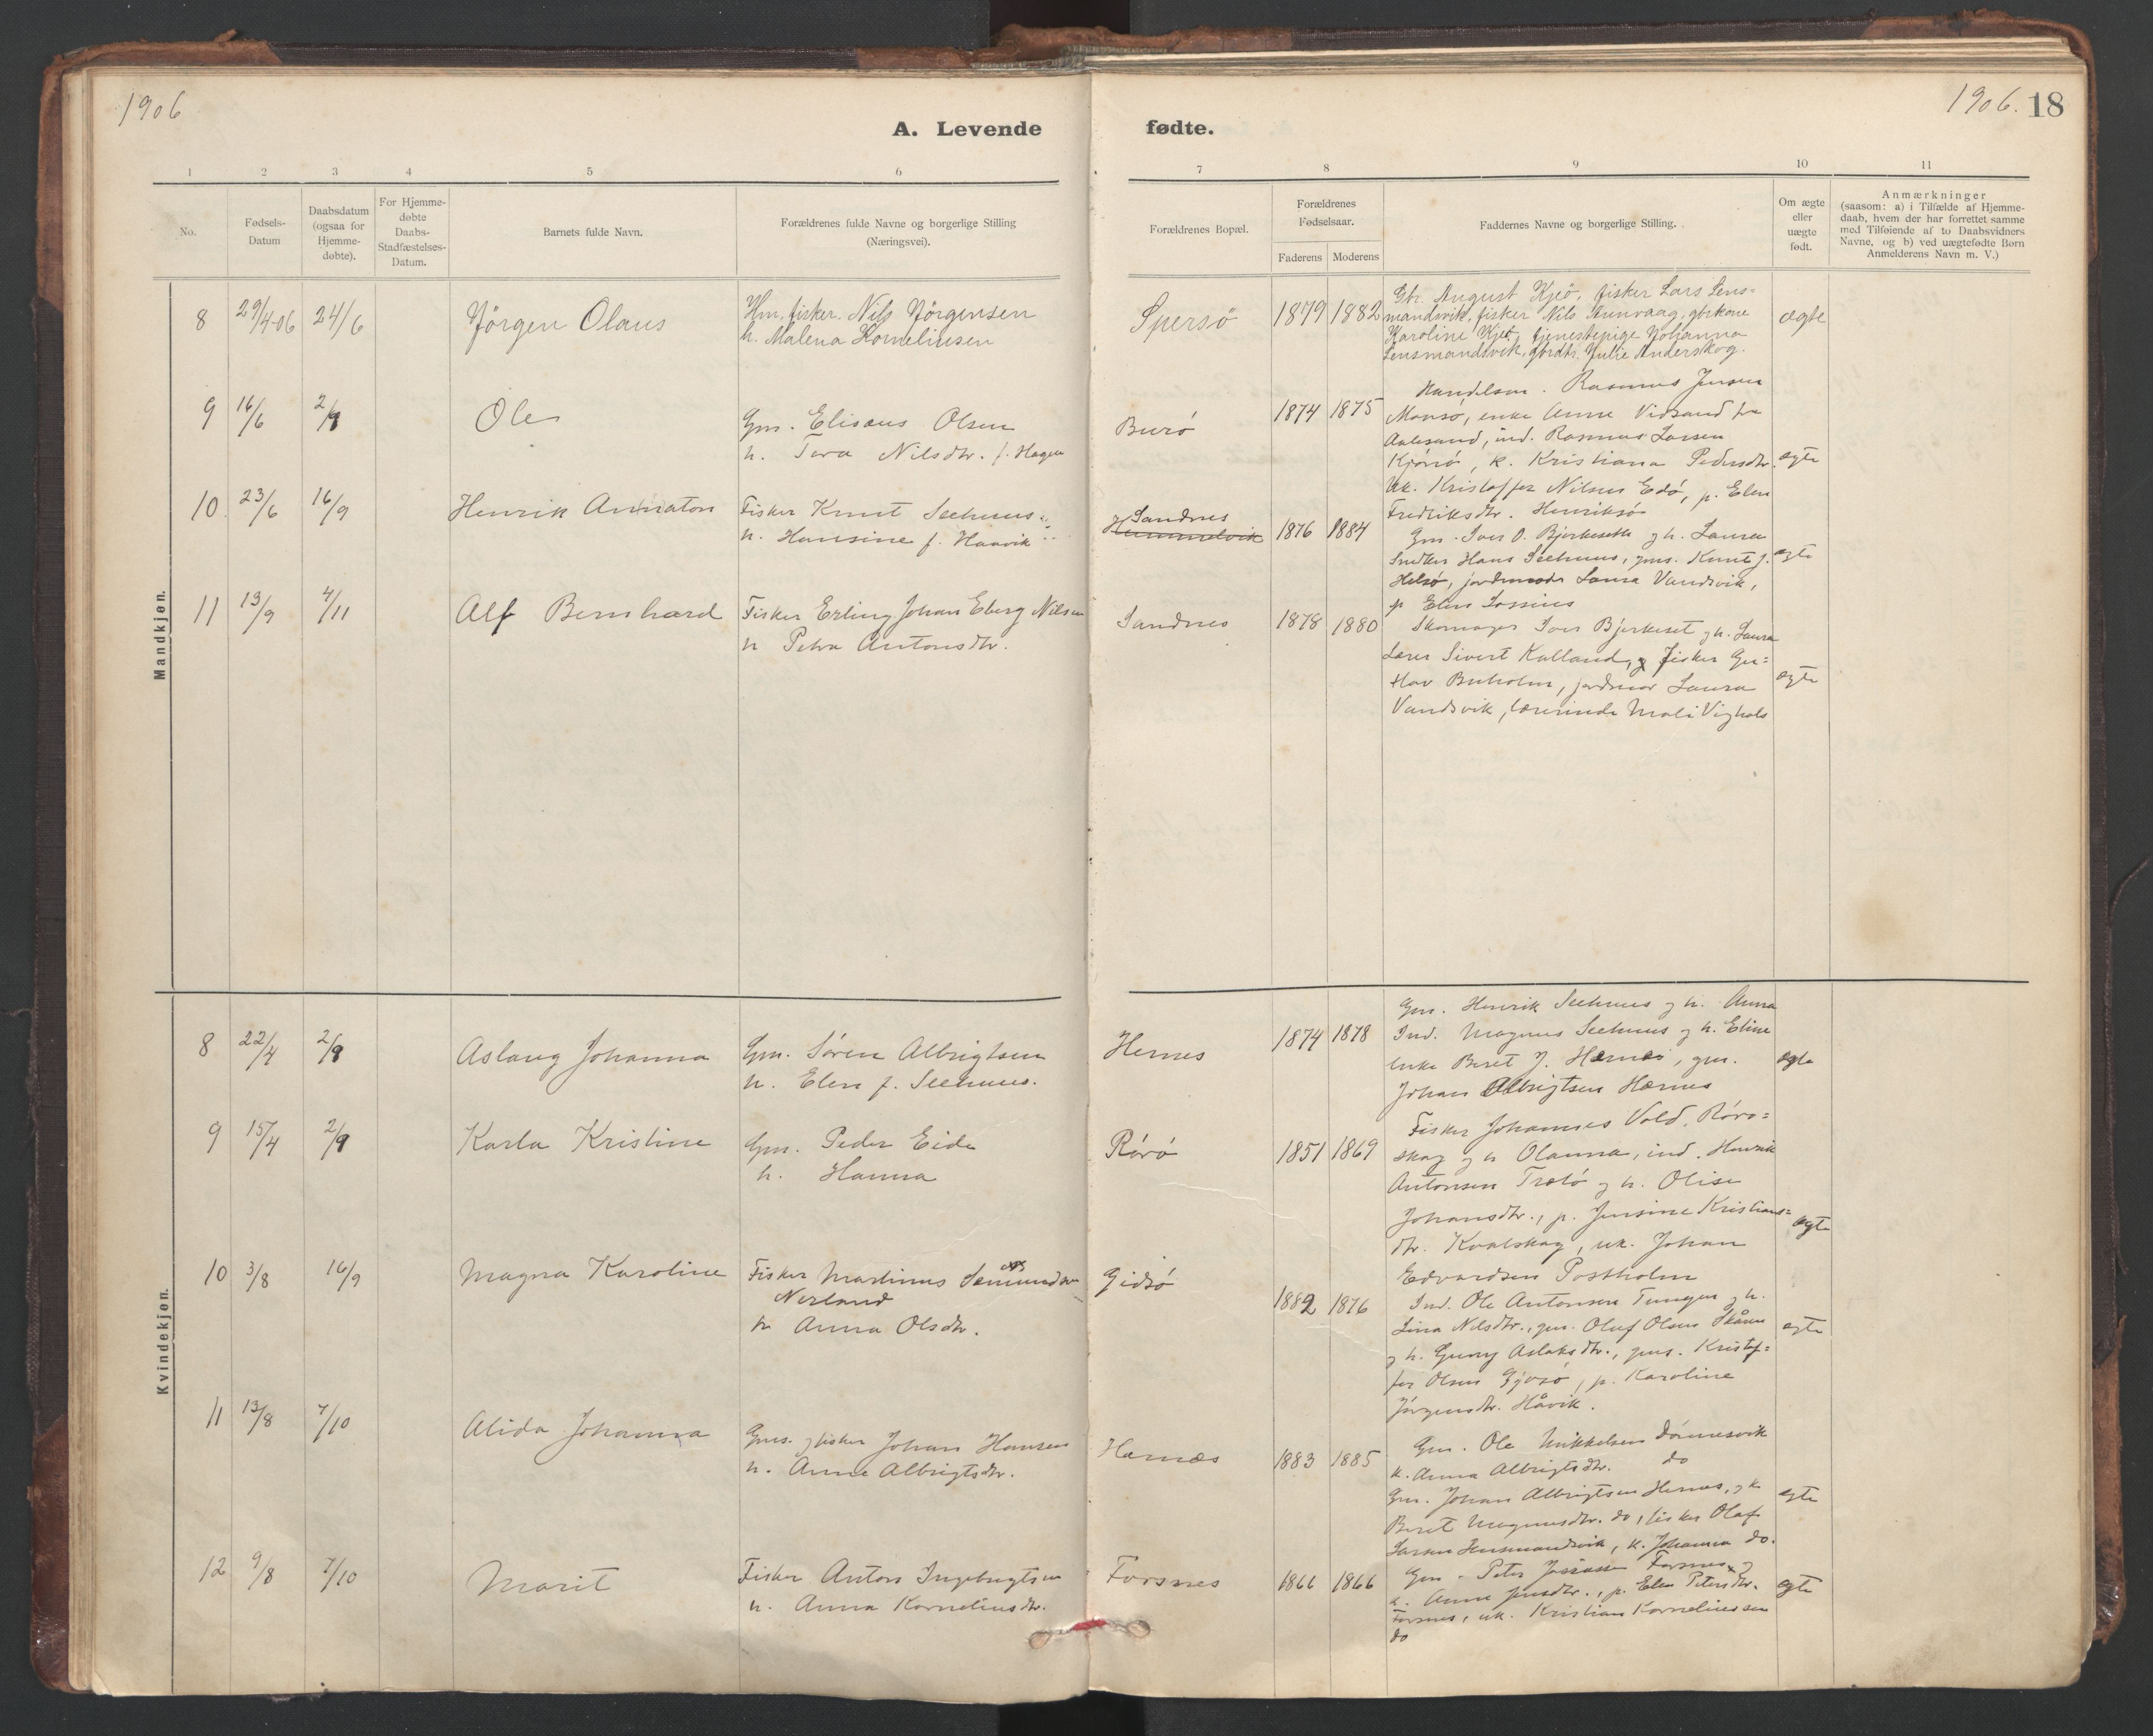 1906
1906. 18
A. Levende fødte.
1 2 3 4 5 6 7 8 9 10 11
No.
Fødsels-
Datum
Daabsdatum
(ogsaa for
Hjemme-
døbte).
For Hjemme-
døbte
Daabs-
Stadfæstelses-
Datum.
Barnets fulde Navn.
Forældrenes fulde Navne og borgerlige Stilling
(Næringsvei).
Forældrenes Bopæl.
Forældrenes
Fødselsaar.
Faderens Moderens
Faddernes Navne og borgerlige Stilling.
Om ægte
eller
uægte
født.
Anmærkninger
(saasom: a) i Tilfælde af Hjemme-
daab, hvem der har forrettet samme
med Tilføiende af to Daabsvidners
Navne, og b) ved uægtefødte Børn
Anmelderens Navn m. V.)
Mandkjøn.
8 29/4-06 24/6 Jörgen Olaus
Hm. fisker. Nils Jörgensen
h. Malena Korneliusen
Spersö 1879 1882
Gbr. August Kjeö, fisker Lars Lens=
mandsvik, fisker Nils Stunvaag, gbrkone
Karoline Kjeö, tjenestepige Johanna
Lensmandsvik, gbrdtr. Julie Anderskog.
ægte
9 16/6 2/9 Ole
Gm. Elisæus Olsen
h. Tora Nilsdtr. f. Hagen
Burö 1874 1875
Handelsm. Rasmus Jensen
Monsö, enke Anne Vidsand fra
Aalesund, ind. Rasmus Larsen
Kjörsö, k. Kristiana Pedersdtr.
Uk. Kristoffer Nilsen Edö, p. Elen
Fredriksdtr. Henriksö
ægte
10. 23/6 16/9 Henrik Annaton
Fisker Knut Seehuus
h. Hansine f. Haavik
Sandnes
Hummelvik 1876 1884
Gm. Iver O. Bjerkeseth og h. Laura
Snedker Hans Seehuus, gms. Knut J.
Helsö, jordmoder Laura Vandsvik,
p Elen Lossius
ægte
11 13/9 4/11 Alf Bernhard
Fisker Erling Johan Eberg Nilsen
h Petra Antonsdtr.
Sandnes 1878 1880
Skomager Iver Bjerkeset og h. Laura
Lærer Sivert Kalland, og fisker Gu=
stav Buholm, jordmor Laura
Vandsvik, lærerinde Mali Vighals
ægte
Kvindekjøn.
8 22/4 2/9 Aslaug Johanna
Gm. Sören Albrigtsen
h. Elen f. Seehuus.
Hernes 1874 1878
Gm. Henrik Seehuus og h. Anna
Ind. Magnus Seehuus og h. Eline
enke Beret J. Hernes, gm.
Johan Albrigtsen Hernes
ægte
9 15/4 2/9 Karla Kristine
Gm. Peder Eide
h. Hanna
Rörö 1851 1869
Fisker Johannes Vold, Rörö=
skag og h Olanna, ind. Henrik
Antonsen Trætö og h. Olise
Johansdtr., p. Jensine Kristians=
dtr. Kvalskag, uk. Johan
Edvardsen Postholm
ægte
10 3/8 16/9 Magna Karoline
Fisker Martinus Semundsen
Nerland
h Anna Olsdtr.
Gidsö 1882 1876
Ind. Ole Antonsen Tungen og h.
Lina Nilsdtr., gm. Oluf Olsen Skånn
og h. Guruy Aslaksdtr., gms. Kristof=
fer Olsen Gjösö, p. Karoline
Jörgensdtr. Håvik.
ægte
11 13/8 7/10 Alida Johanna
Gms. og fisker Johan Hansen
h. Anne Albrigtsdtr.
Hernæs 1883 1885
Gm. Ole Mikkelsen Dönnesvik
k. Anna Albrigtsdtr. do
Gm. Johan Albrigtsen Hernes, og k
Beret Magnusdtr. do, fisker Olaf
Larsen Lensmandsvik, k. Johanna do.
ægte
12 9/8 7/10 Marit
Fisker Anton Ingebrigtsen
h. Anna Korneliusdtr.
Forsnes 1866 1866
Gm. Peter Jonassen Forsnes og
k. Anne Jensdtr., p. Elen Petersdtr.
Forsnes, uk. Kristian Korneliussen
do
ægte